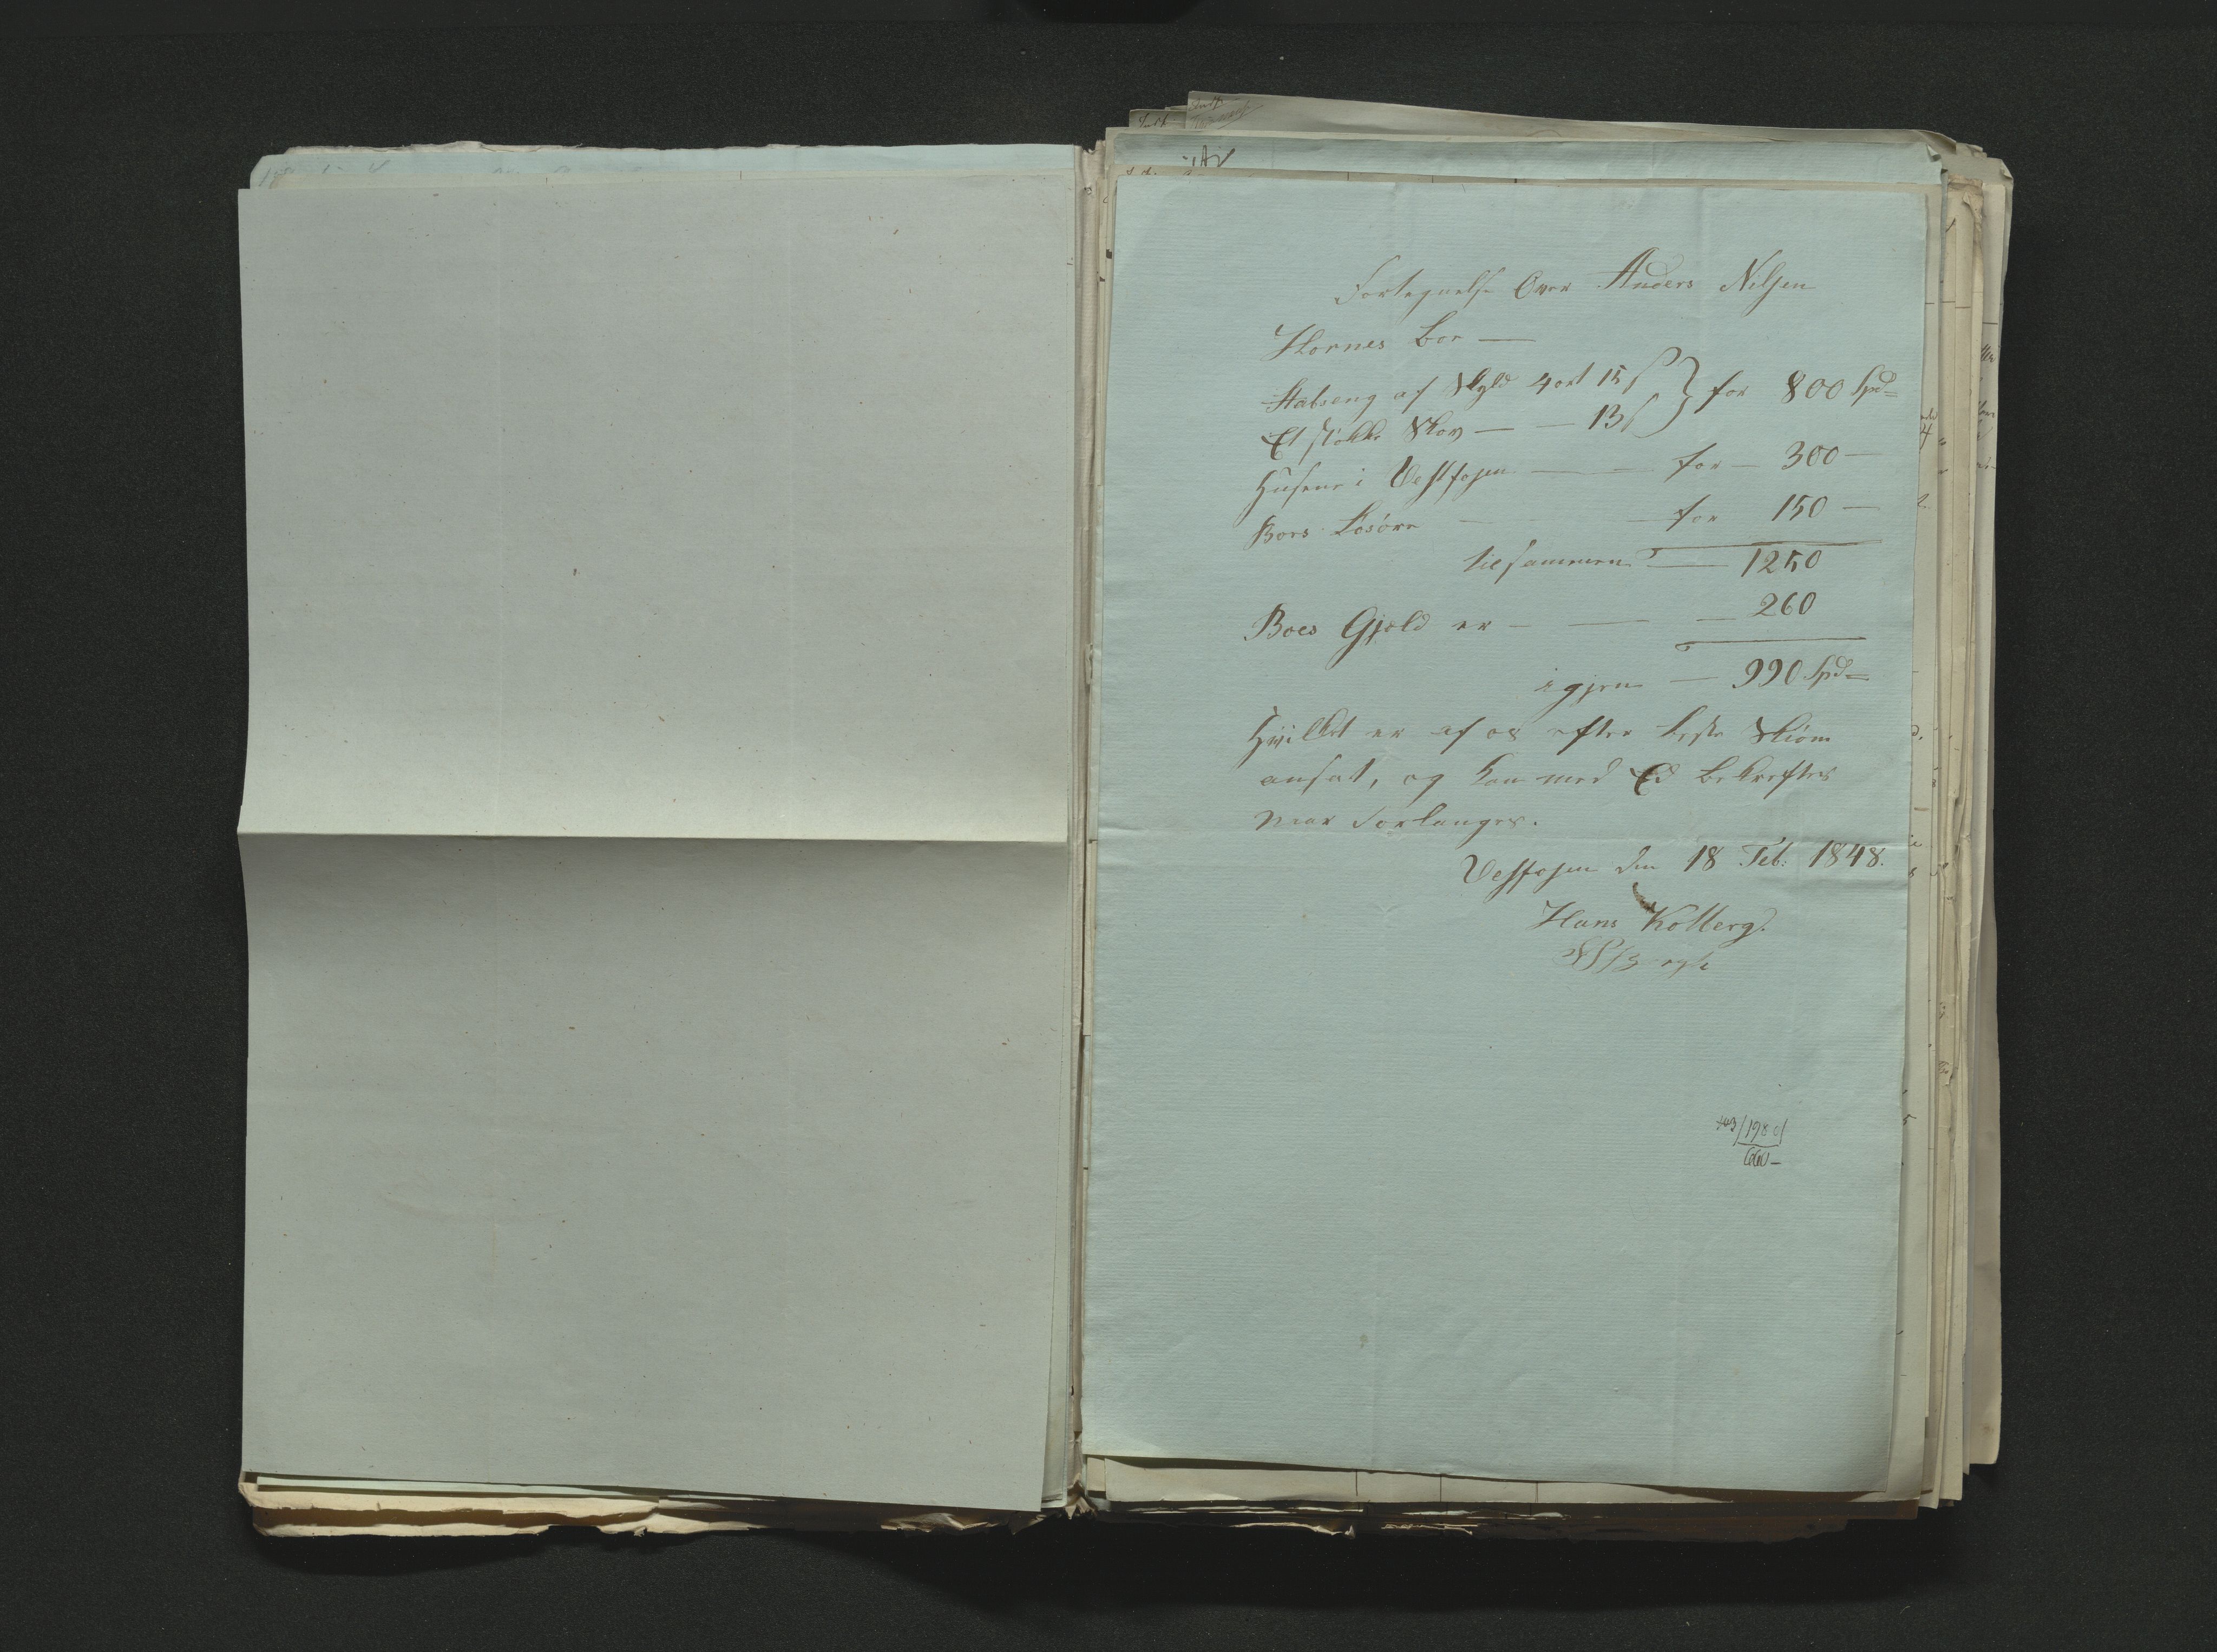 Fortegnelse Over Anders Nilsen
Hornes Boe —
Habseng af Skyld 4 ort 15 s } for 800 Spd
Et støkke Skov — — 13 s
Husene i Vestfosen — — for — 300 —
Boes Løsøre — — for 150 —
tilsammen — 1250
Boes Gjæld er — — — 260
igjen — 990 Spd
Hvilket er af os efter beste Skiøn
ansat, og kan med Ed bekreftes
naar Forlanges.
Vestfosen den 18 Feb: 1848.
Hans Kolberg.
1980
660 —